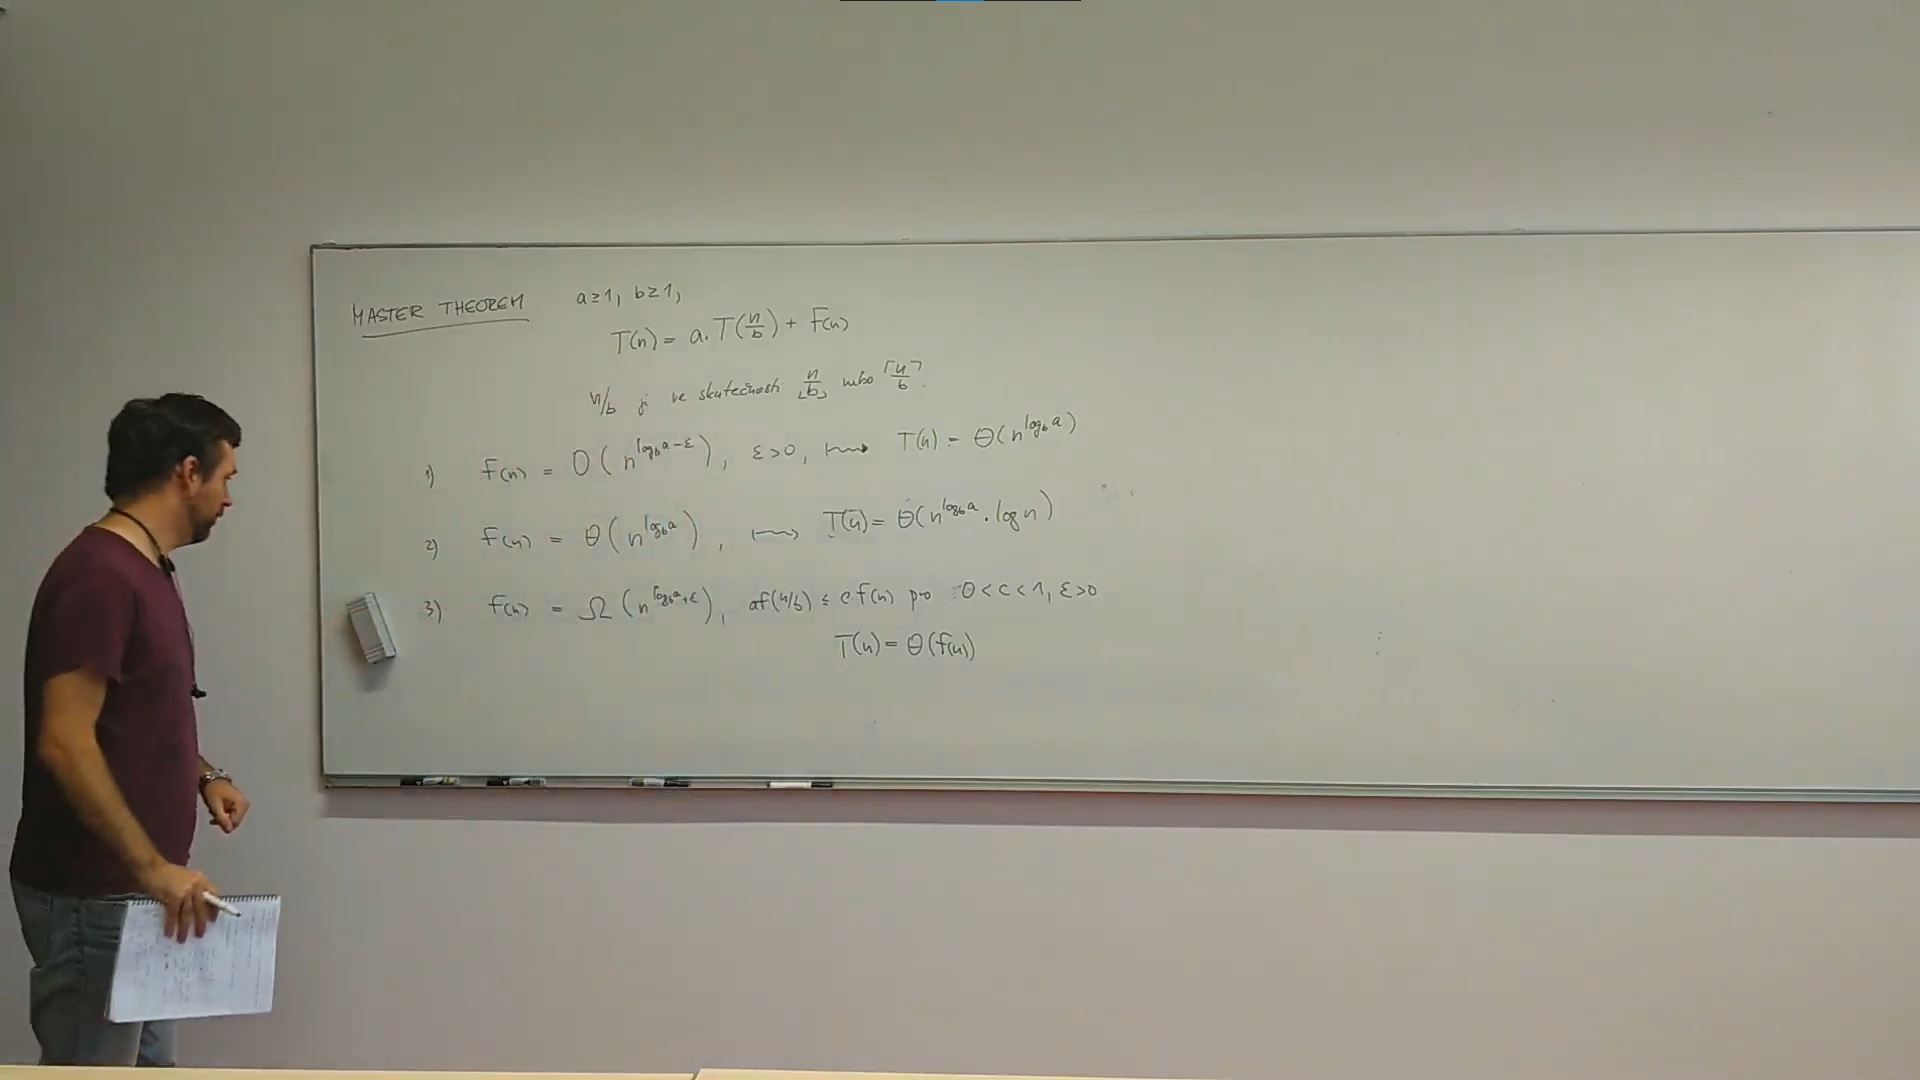 MASTER THEOREM a≥1, b≥1,
T(n) = a·T(n/b) + f(n)
n/b je ve skutečnosti ⌊n/b⌋ nebo ⌈n/b⌉.
1) f(n) = O(n^(log_b a-ε)), ε>0, ⟼ T(n) = Θ(n^(log_b a))
2) f(n) = Θ(n^(log_b a)), ⟼ T(n) = Θ(n^(log_b a)·log n)
3) f(n) = Ω(n^(log_b a+ε)), af(n/b) ≤ cf(n) pro 0<c<1, ε>0
T(n) = Θ(f(n))